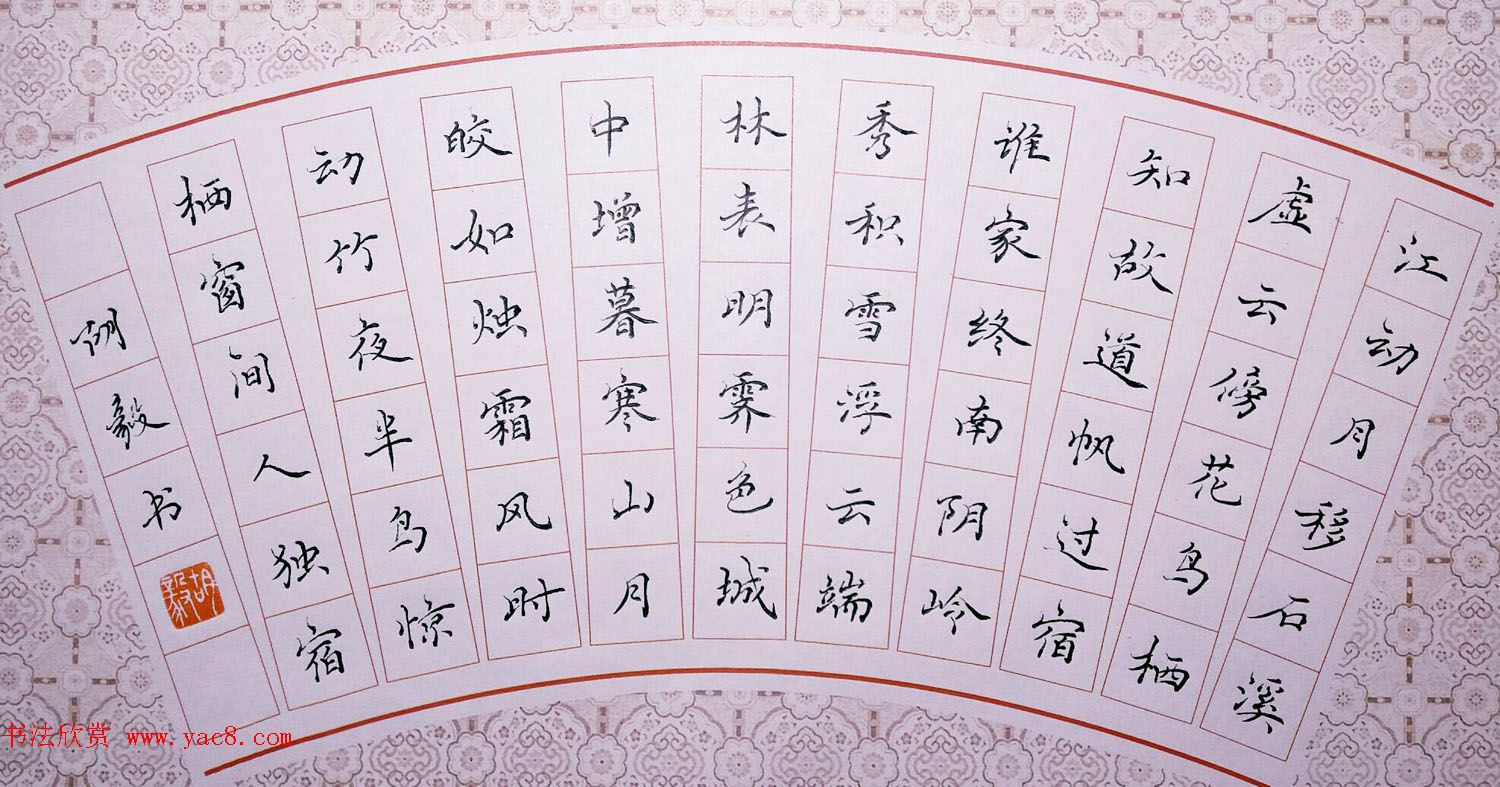 江动月移石溪
虚云傍花鸟栖
知故道帆过宿
谁家终南阴岭
秀积雪浮云端
林表明霁色城
中增暮寒山月
皎如烛霜风时
动竹夜半鸟惊
栖窗间人独宿
胡毅书
胡毅
书法欣赏 www.yac8.com